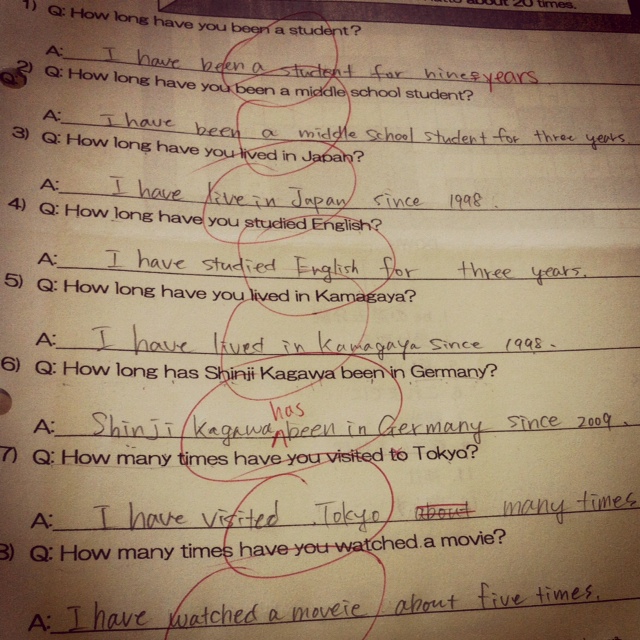 about 20 times.
1) Q: How long have you been a student?
A: I have been a student for nine years
2) Q: How long have you been a middle school student?
A: I have been a middle school student for three years.
3) Q: How long have you lived in Japan?
A: I have live in Japan since 1998.
4) Q: How long have you studied English?
A: I have studied English for three years.
5) Q: How long have you lived in Kamagaya?
A: I have lived in Kamagaya since 1998.
6) Q: How long has Shinji Kagawa been in Germany?
has
A: Shinji Kagawa been in Germany since 2009.
7) Q: How many times have you visited to Tokyo?
A: I have visited Tokyo about many times
8) Q: How many times have you watched a movie?
A: I have watched a moveie about five times.